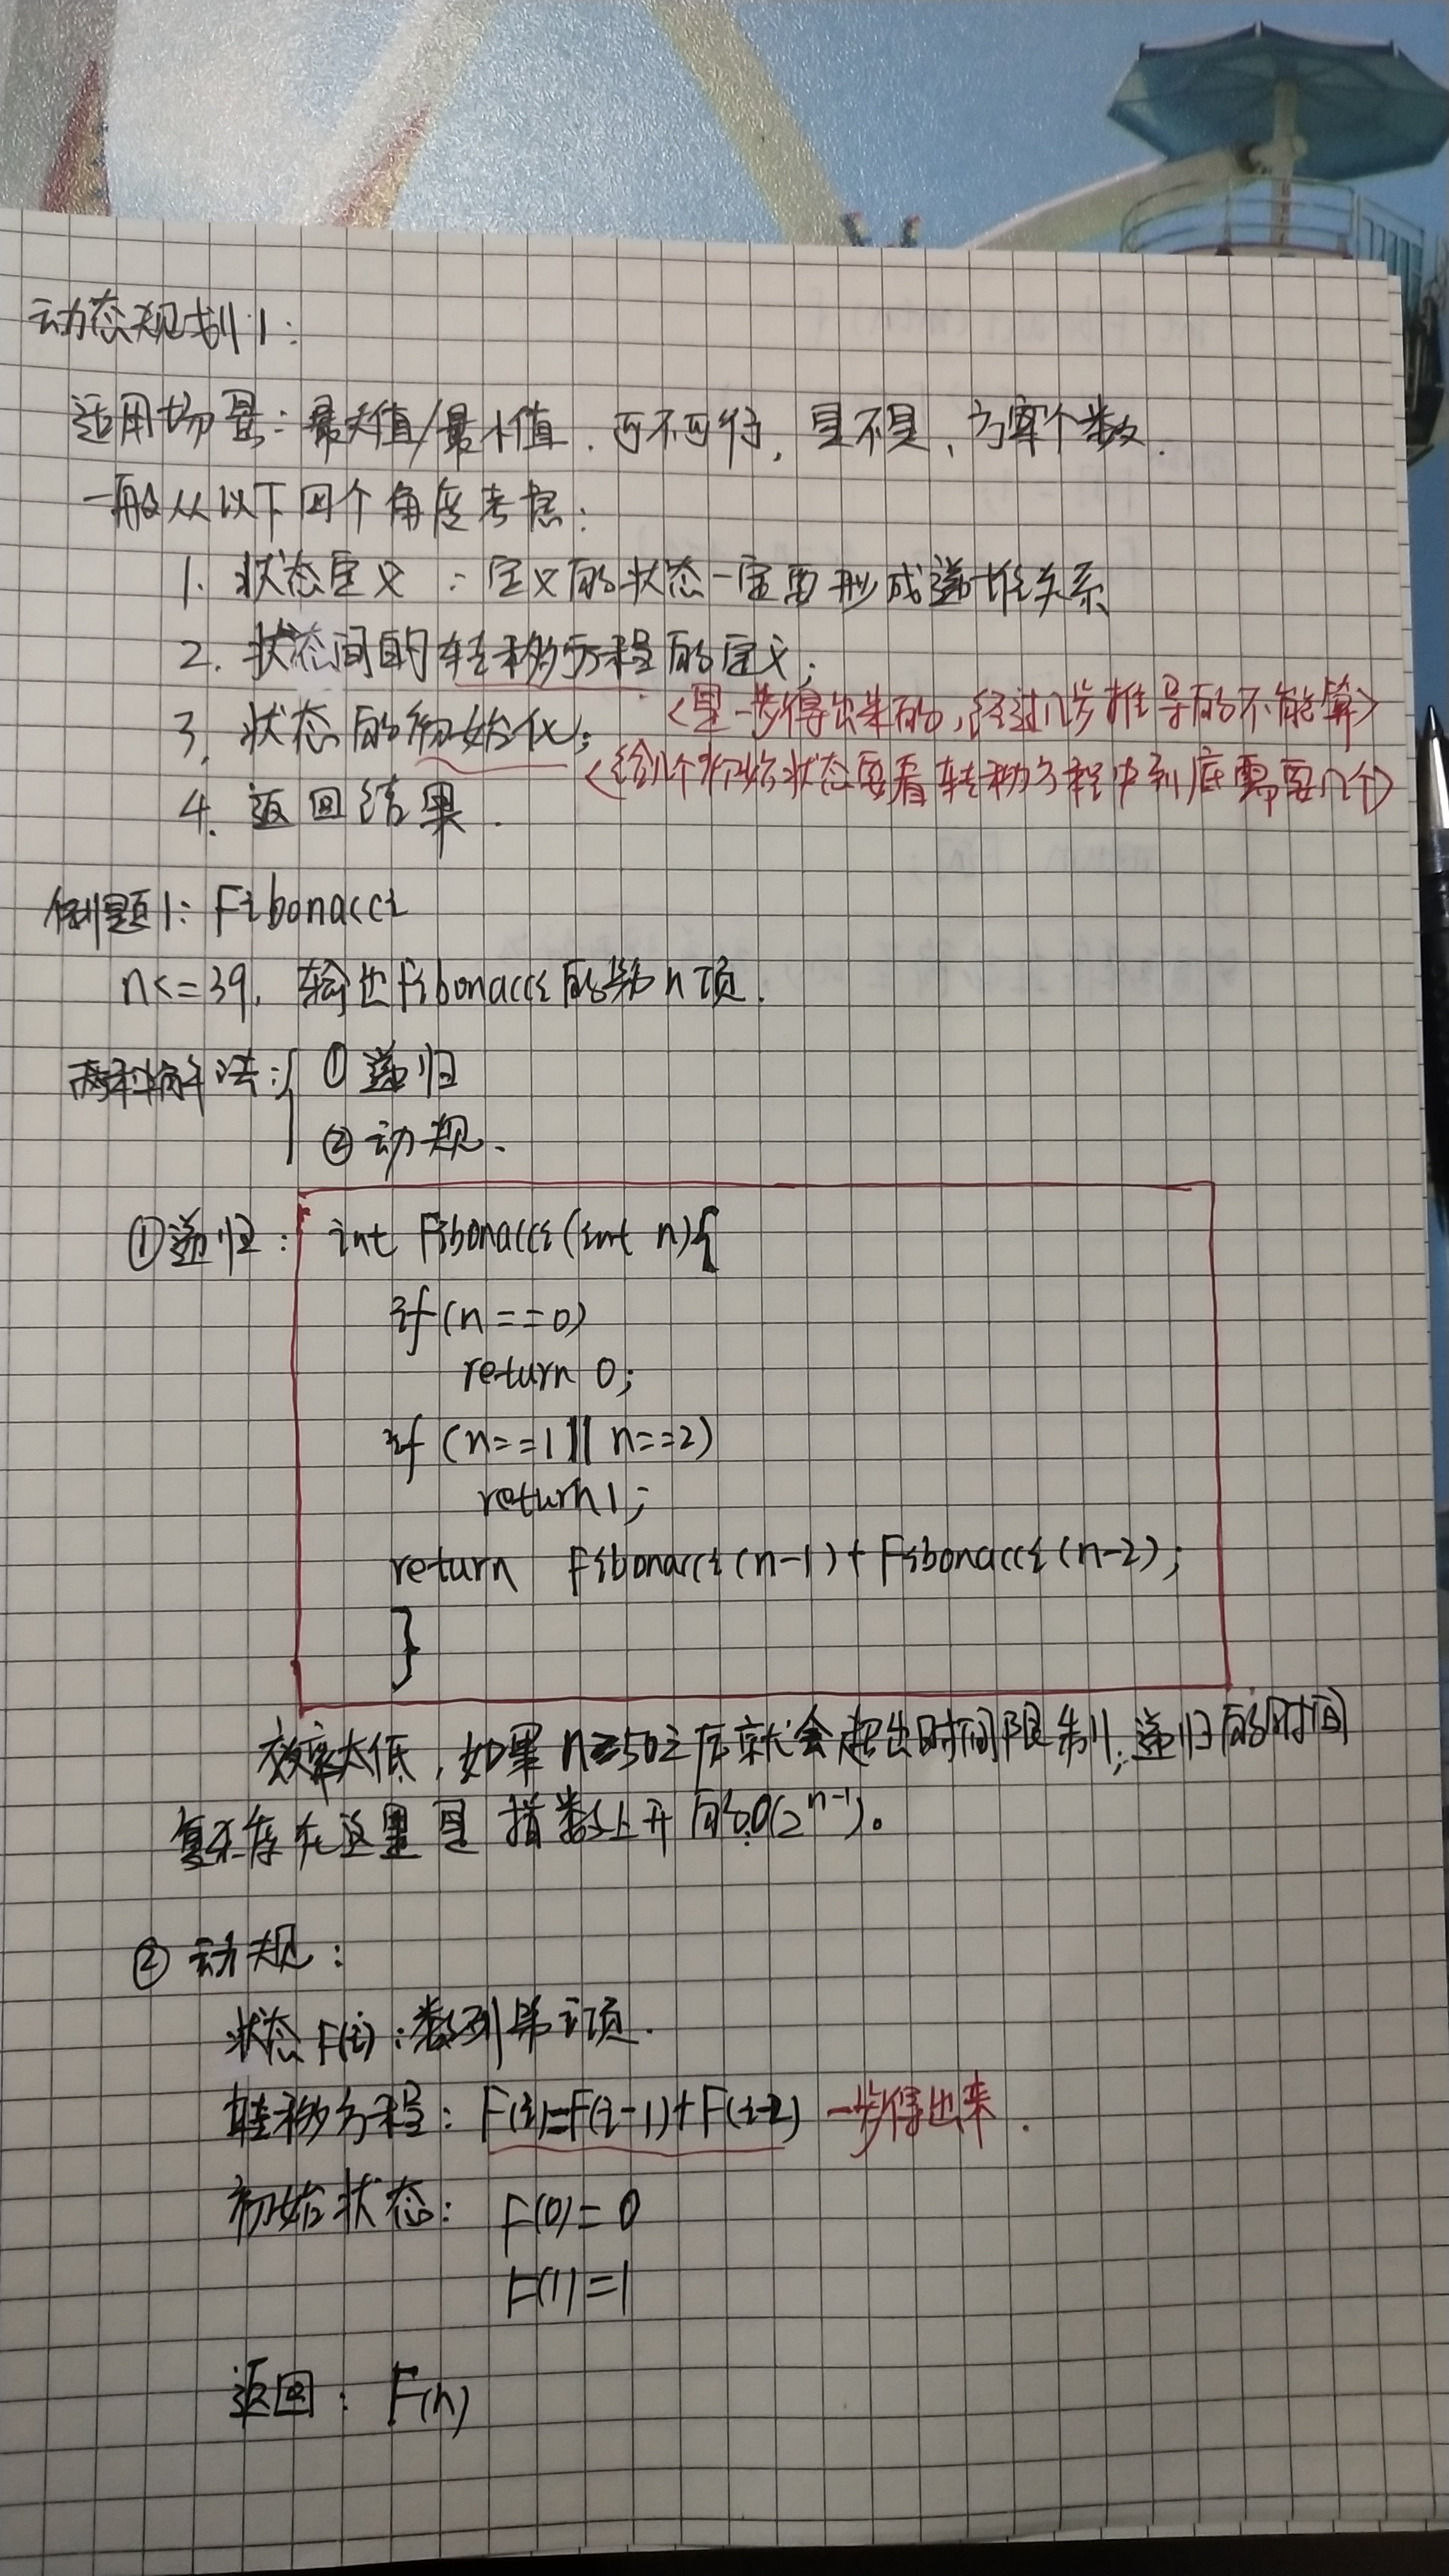 动态规划1:
适用场景: 最大值/最小值. 可不可行, 是不是, 方案个数.
一般从以下四个角度考虑:
1. 状态定义 : 定义的状态一定要形成递推关系
2. 状态间的转移方程的定义;
3. 状态的初始化; <是一步得出来的,经过几步推导的不能算>
<给几个初始状态要看转移方程中到底需要几个>
4. 返回结果.
例题1: Fibonacci
n<=39, 输出Fibonacci的第n项.
两种解法: ①递归
②动规.
①递归: int Fibonacci(int n){
if(n==0)
return 0;
if (n==1||n==2)
return 1;
return Fibonacci(n-1)+Fibonacci(n-2);
}
效率太低,如果n≥50之后就会超出时间限制;递归的时间
复杂度在这里是 指数上升的O(2^n-1)。
② 动规:
状态F(i):数列第i项.
转移方程: F(i)=F(i-1)+F(i-2) 一步得出来.
初始状态: F(0)=0
F(1)=1
返回: F(n)